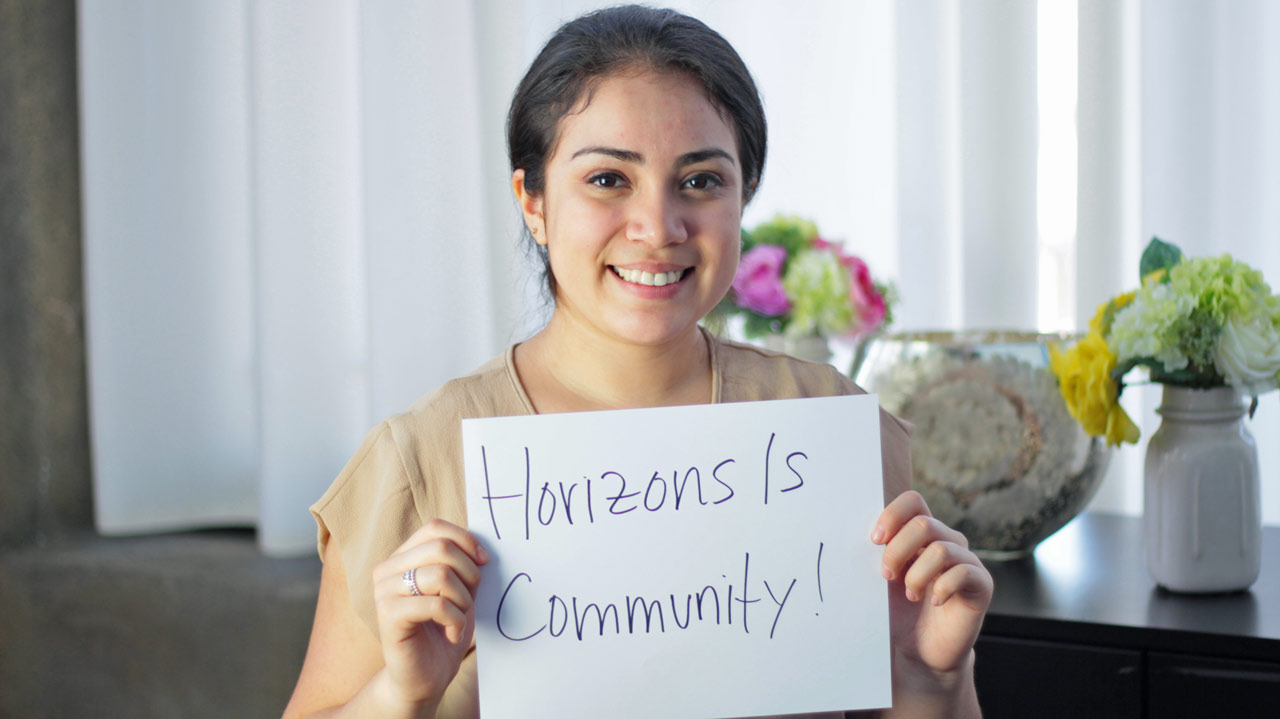 Horizons Is
Community!